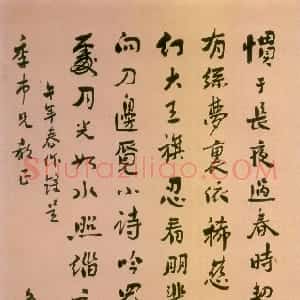 慣于長夜過春時
有絲夢裏依稀慈
幻大王旗忍看朋
向刀邊覓小詩吟
處月光如水照緇
午年春作錄呈
季市兄教正
Shufaziliao.COM